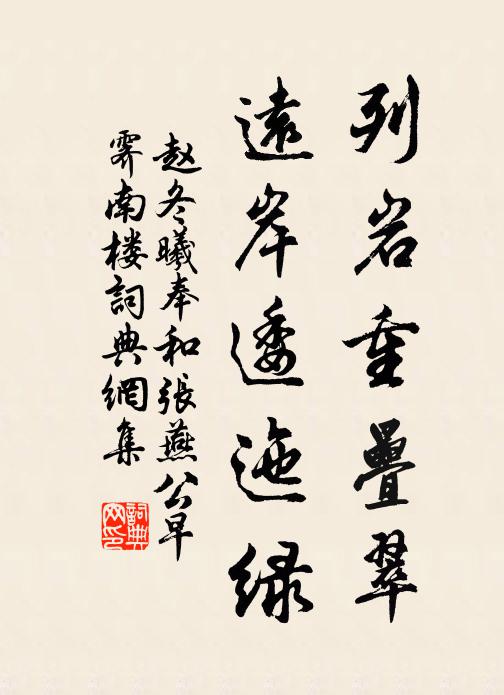 列岩重疊翠
遠岸逶迤绿
赵冬曦奉和张燕公早
霁南楼詞典網集
詞典
网印